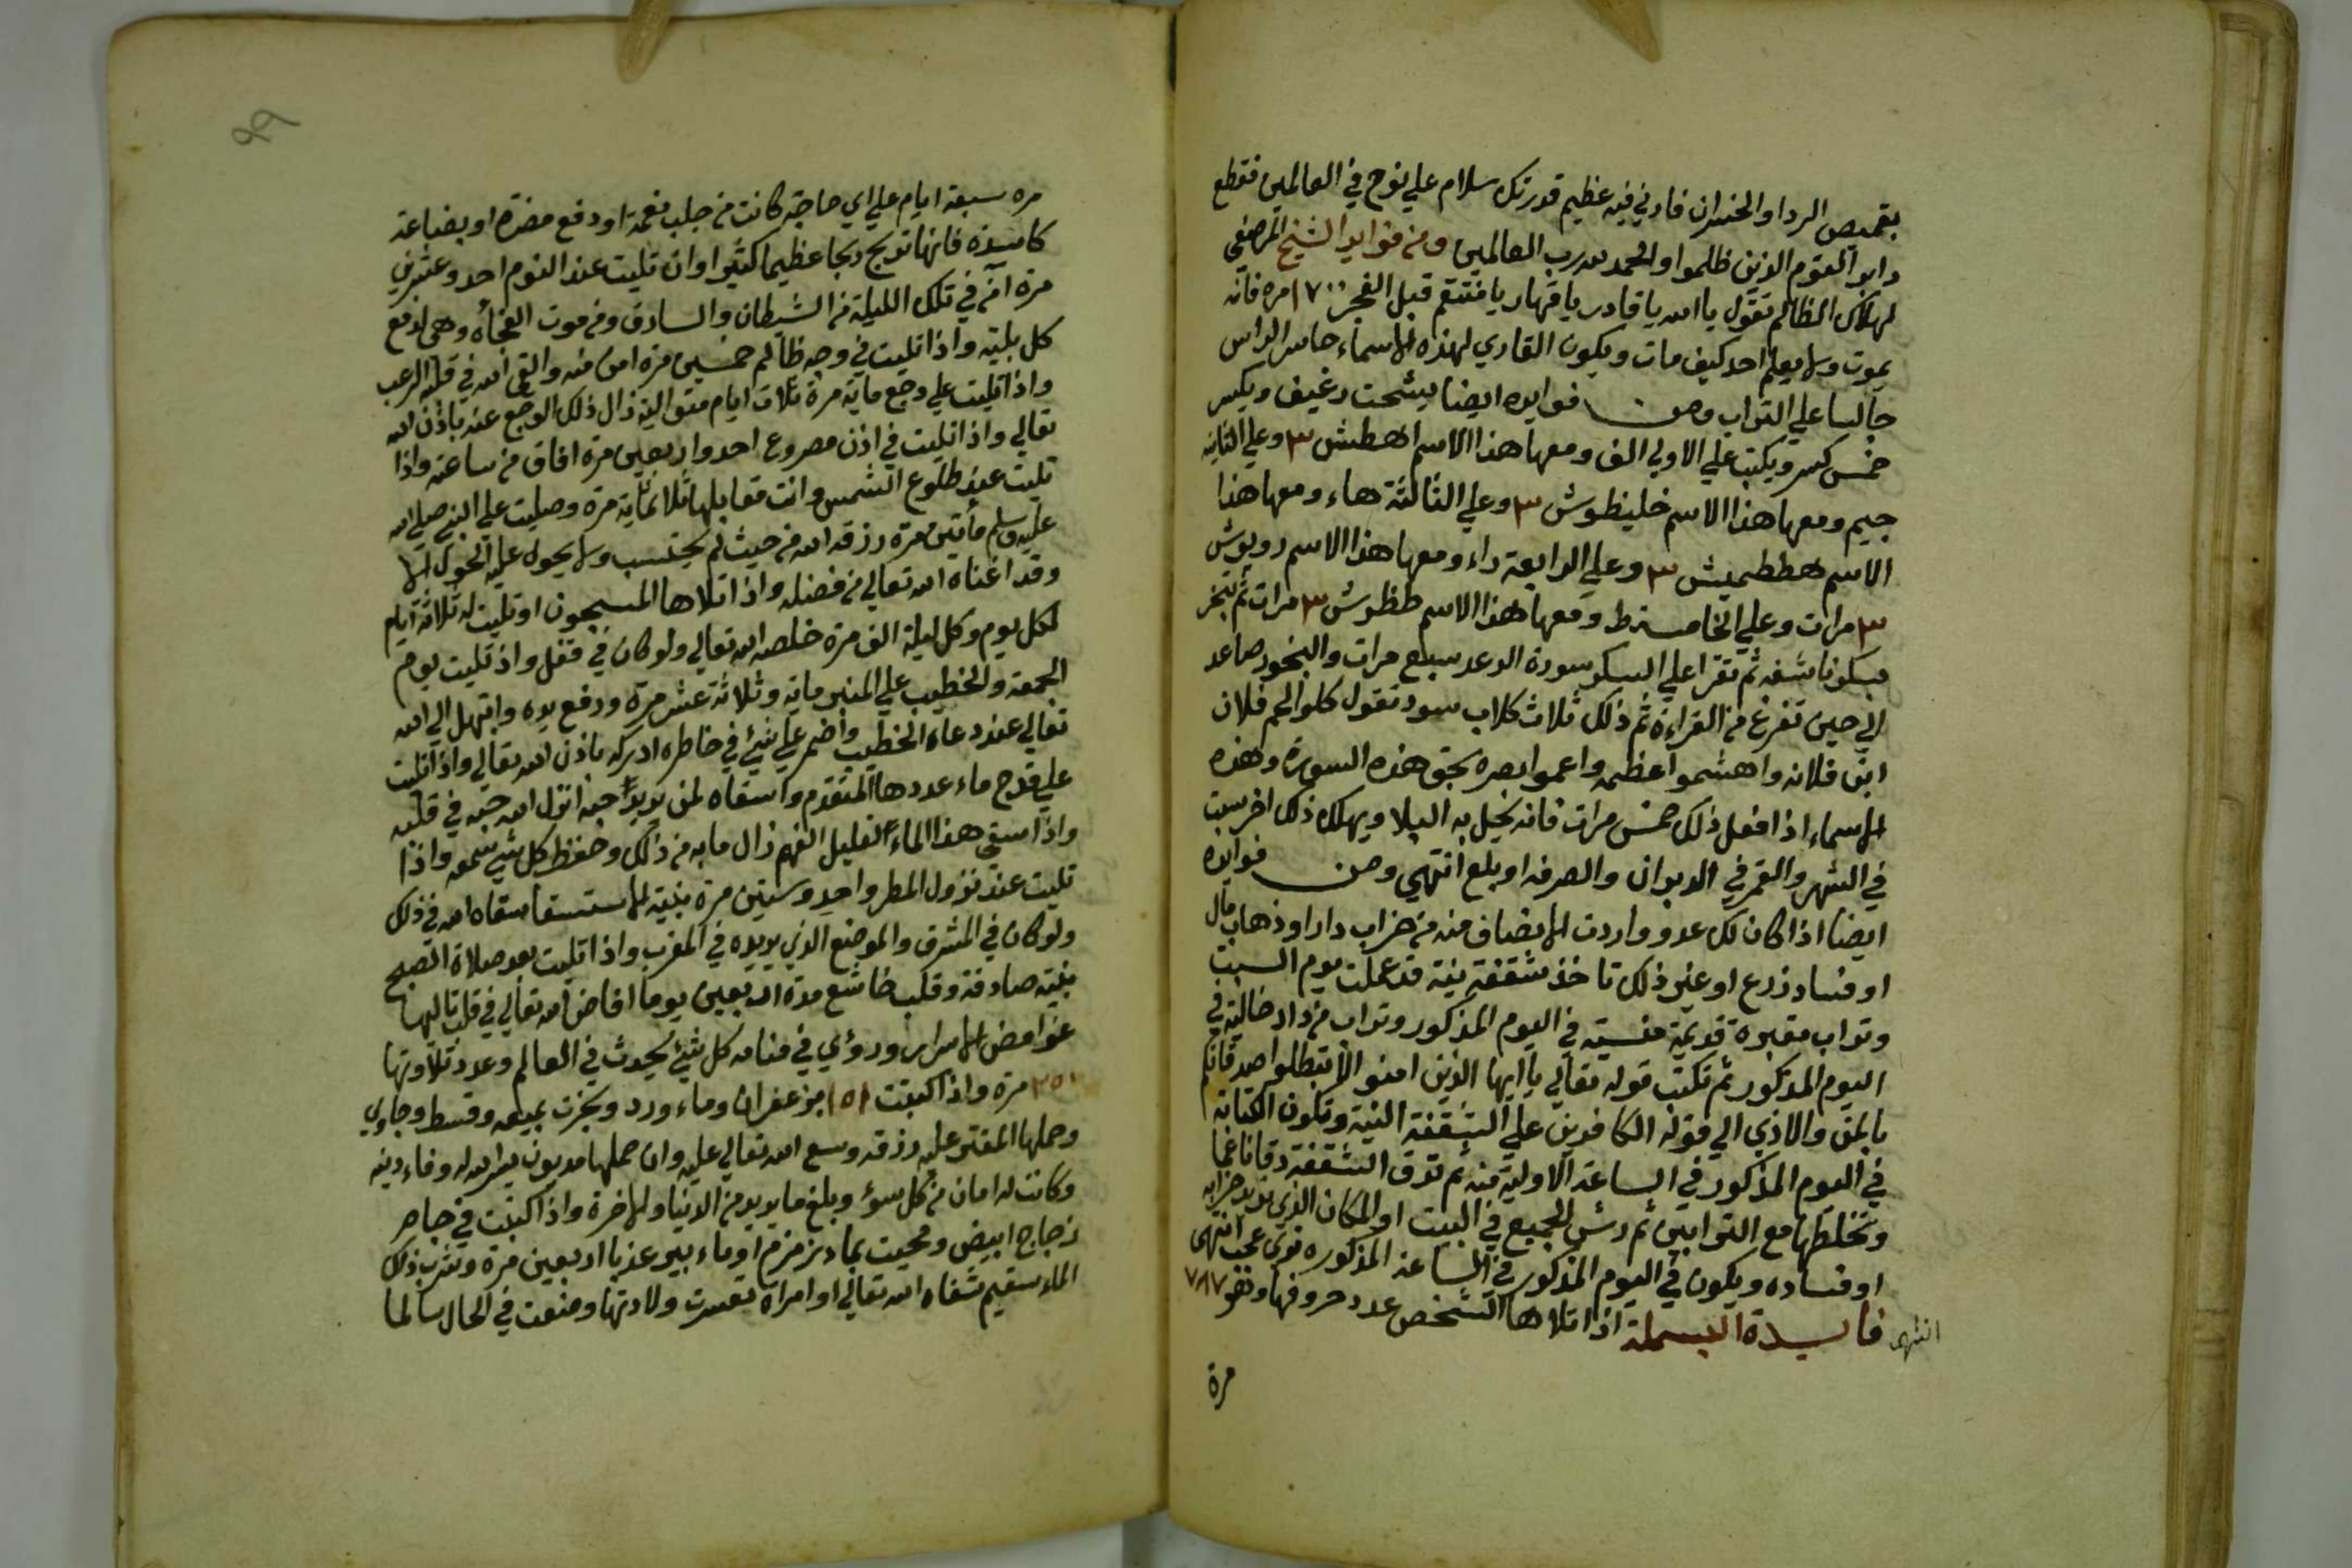 بقميص الردا والخسران فارني فيه عظيم قدرتك سلام علي نوح في العالمين فقطع
دابر القوم الذين ظلموا والحمد لله رب العالمين ومن فوايد الشيخ المرصفي
لهلاك الظالم تقول يا الله يا قادر يا قهار يا منتقم قبل الفجر ١٧٠٠ مره فانه
يموت ولا يعلم احد كيف مات ويكون القاري لهذه الاسماء حاسر الراس
جالسا علي التراب ومن فوايده ايضا يشحت رغيف ويكسر
خمس كسر ويكتب علي الاولي الف ومعها هذا الاسم اهطش ٣ وعلي الثانيه
جيم ومعها هذا الاسم خليظوش ٣ وعلي الثالثة هاء ومعها هذا
الاسم هططميش ٣ وعلي الرابعة راء ومعها هذا الاسم دويوش
٣ مرات وعلي الخامسة ط ومعها هذا الاسم طظوش ٣ مرات ثم تبخر
ثم تقرا علي السكر سورة الرعد سبع مرات والبخور صاعد
الي حين تفرغ من القراءة ثم ذلك ثلاث كلاب سود تقول كلو الحم فلان
ابن فلانه واهشموا عظمه واعموا بصره بحق هذه السورة وهذه
الاسماء اذا فعل ذلك خمس مرات فانه يحل به البلا ويهلك ذلك اخر سبت
في الشهر والقمر في الدبران والصرفه او بلع انتهي ومن فوايده
ايضا اذا كان لك عدو واردت الانصاف منه من خراب دار او ذهاب مال
او فساد زرع او غير ذلك تاخذ شقفة نية قد عملت يوم السبت
وتراب مقبرة قديمة منسية في اليوم المذكور وتراب من دار خالية في
اليوم المذكور ثم تكتب قوله تعالي يا ايها الذين امنو الا تبطلوا صدقاتكم
بالمن والاذي الي قوله الكافرين علي الشقفة النية وتكون الكتابه
في اليوم المذكور في الساعة الاولية منه ثم تدق الشقفة دقا ناعما
وتخلطها مع الترابين ثم رش الجميع في البيت او المكان الذي تريد خرابه
او فساده ويكون في اليوم المذكور في الساعة المذكوره تري عجب انتهي
فايدة البسملة اذا تلاها الشخص عدد حروفها وهو ٧٨٧
انتهي
مرة
٩٩
مره سبعة ايام علي اي حاجة كانت من جلب نعمة او دفع مضرة او بضاعة
كاسدة فانها تربح ربحا عظيما كثيرا وان تليت عند النوم احد وعشرين
مرة آمن في تلك الليلة من الشيطان والسارق ومن موت الفجأه وهي لدفع
كل بليه واذا تليت في وجه ظالم خمسين مرة امن منه والقي الله في قلبه الرعب
واذا تليت علي وجع ماية مرة ثلاث ايام متوالية زال ذلك الوجع عنه باذن الله
تعالي واذا تليت في اذن مصروع احد واربعين مرة افاق من ساعته واذا
تليت عند طلوع الشمس وانت مقابلها ثلاثماية مرة وصليت علي النبي صلي الله
عليه وسلم مأتين مرة رزقه الله من حيث لم يحتسب ولا يحول عليه الحول الا
وقد اغناه الله تعالي من فضله واذا تلاها المسجون او تليت له ثلاثة ايام
لكل يوم وكل ليلة الف مرة خلصه الله تعالي ولو كان في قتل واذ تليت يوم
الجمعة والخطيب علي المنبر ماية وثلاثة عشر مرة ورفع يده وابتهل الي الله
تعالي عند دعاء الخطيب واضمر علي شيئ في خاطره ادركه باذن الله تعالي واذا تليت
علي قدح ماء عددها المتقدم واسقاه لمن يريد حبه انزل الله حبه في قلبه
واذا سقي هذا الماء لقليل الفهم زال مابه من ذلك وحفظ كل شي سمعه واذا
تليت عند نزول المطر واحد وستين مرة بنية الاستسقا سقاه الله في ذلك
ولو كان في المشرق والموضع الذي يريده في المغرب واذا تليت بعد صلاة الصبح
بنية صادقة وقلب خاشع مدة اربعين يوما افاض الله تعالي في قلب تاليها
غوامض الاسرار ورؤي في منامه كل شيئ يحدث في العالم وعدد تلاوتها
٢٥١ مرة واذا كتبت ١٥١ بزعفران وماء ورد وبخرت بميعه وقسط وجاوي
وحملها المقتر عليه رزقه وسع الله تعالي عليه وان حملها مديون يسر الله له وفاء دينه
وكانت له امان من كل سوء وبلغ ما يريد من الدنيا والاخرة واذا كتبت في جام
زجاج ابيض ومحيت بماء زمزم او ماء بير عذبا اربعين مرة وشرب ذلك
الماء سقيم شفاه الله تعالي او امراة تعسرت ولادتها وضعت في الحال سالما